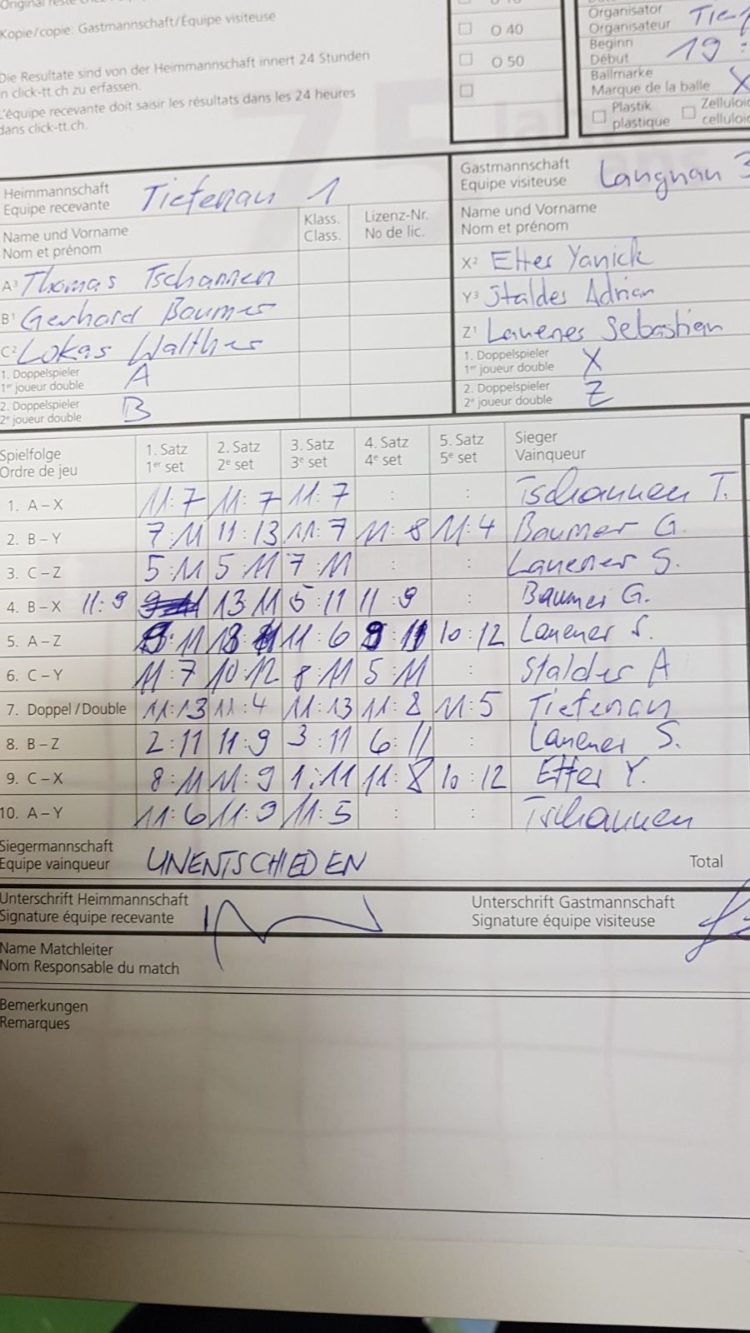 Original reste chez
Kopie/copie: Gastmannschaft/Équipe visiteuse
Die Resultate sind von der Heimmannschaft innert 24 Stunden
in click-tt.ch zu erfassen.
L'équipe recevante doit saisir les résultats dans les 24 heures
dans click-tt.ch.
O 40
O 50
Organisator
Organisateur
Beginn
Début 19:
Ballmarke
Marque de la balle X
Plastik
plastique
Zelluloid
celluloid
Heimmannschaft
Equipe recevante Tiefenau 1
Name und Vorname
Nom et prénom
Klass.
Class.
Lizenz-Nr.
No de lic.
A³ Thomas Tschannen
B¹ Gerhard Baumer
C² Lukas Walther
1. Doppelspieler
1er joueur double A
2. Doppelspieler
2e joueur double B
Gastmannschaft
Equipe visiteuse Langnau 3
Name und Vorname
Nom et prénom
X² Etter Yanick
Y³ Stalder Adrian
Z¹ Lauener Sebastian
1. Doppelspieler
1er joueur double X
2. Doppelspieler
2e joueur double Z
Spielfolge
Ordre de jeu
1. Satz
1er set
2. Satz
2e set
3. Satz
3e set
4. Satz
4e set
5. Satz
5e set
Sieger
Vainqueur
1. A–X 11:7 11:7 11:7 : : Tschannen T.
2. B–Y 7:11 11:13 11:7 11:8 11:4 Baumer G.
3. C–Z 5:11 5 11 7:11 : : Lauener S.
4. B–X 11:9 13 11 5:11 11:9 : Baumer G.
5. A–Z :11 13 11:6 11 10:12 Lauener S.
6. C–Y 11:7 10:12 8:11 5:11 : Stalder A
7. Doppel/Double 11:13 11:4 11:13 11:8 11:5 Tiefenau
8. B–Z 2:11 11:9 3:11 6:11 : Lauener S.
9. C–X 8:11 11:9 1:11 11:8 10:12 Etter Y.
10. A–Y 11:6 11:9 11:5 : : Tschannen
Siegermannschaft
Equipe vainqueur UNENTSCHIEDEN
Total
Unterschrift Heimmannschaft
Signature équipe recevante
Unterschrift Gastmannschaft
Signature équipe visiteuse
Name Matchleiter
Nom Responsable du match
Bemerkungen
Remarques